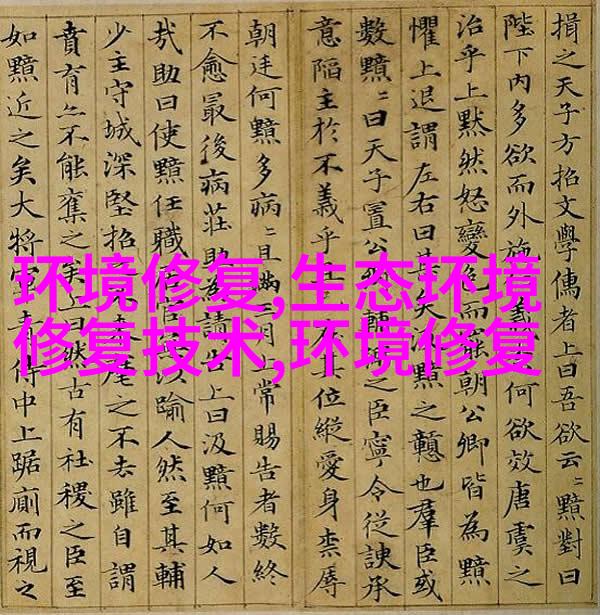 环境修复,生态环境
修复技术,环境修复
揖之天子方招文學儒者上曰吾欲云〻黯對曰
陛下內多欲而外施義何欲效唐虞之
治乎上默然怒變色而罷朝公卿皆為黯
懼上退謂左右曰甚矣汲黯之戇也羣臣或
數黯〻曰天子置公卿輔弼之臣寧令從諛承
意陷主於不義乎且已在其位縱愛身柰辱
朝廷何黯多病〻且滿三月上常賜告者數終
不愈最後病莊助為請告上曰汲黯何如人
哉助曰使黯任職居官以踰人然至其輔
少主守城深堅招來麾之不去雖自謂
賁育亦不能奪之矣上曰然古有社稷之臣至
如黯近之矣大將軍青侍中上踞廁而視之